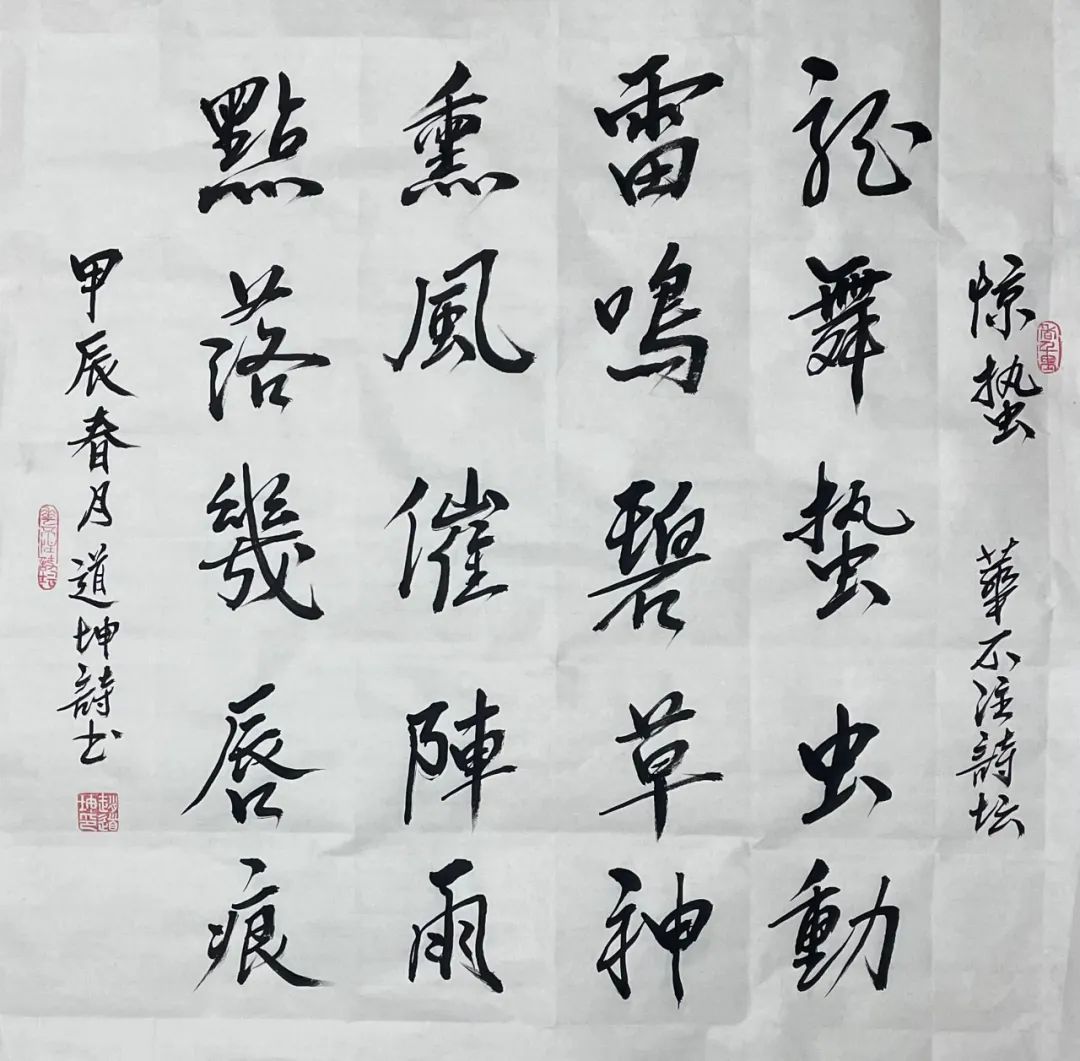 惊蛰 華不注詩坛
龙舞蛰虫動
雷鳴碧草神
熏風催陣雨
點落幾唇痕
甲辰春月道坤詩书
趙道坤印